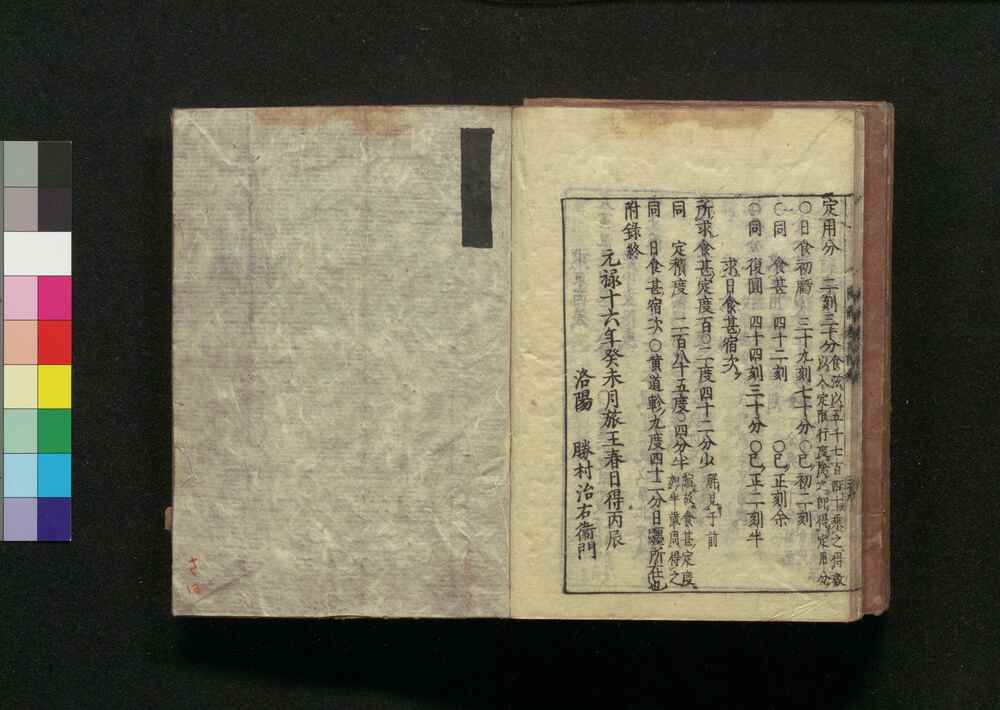 定用分 二刻三十分食弦以五千七百四十乗之得数
以入定限行度除之即得定用分
〇日食初虧 三十九刻七十分〇巳初二刻
〇同 食甚 四十二刻 〇巳正刻余
〇同 復圓 四十四刻三十分〇巳正二刻半
求日食甚宿次
所求食甚定度百〇二度四十二分少 解見于前
同 定積度 二百八十五度〇四分半 故食甚定度
加半歳周得之
同 日食甚宿次〇黄道軫九度四十二分日躔所在也
附録終
元禄十六年癸未月旅王春日得丙辰
洛陽 勝村治右衛門